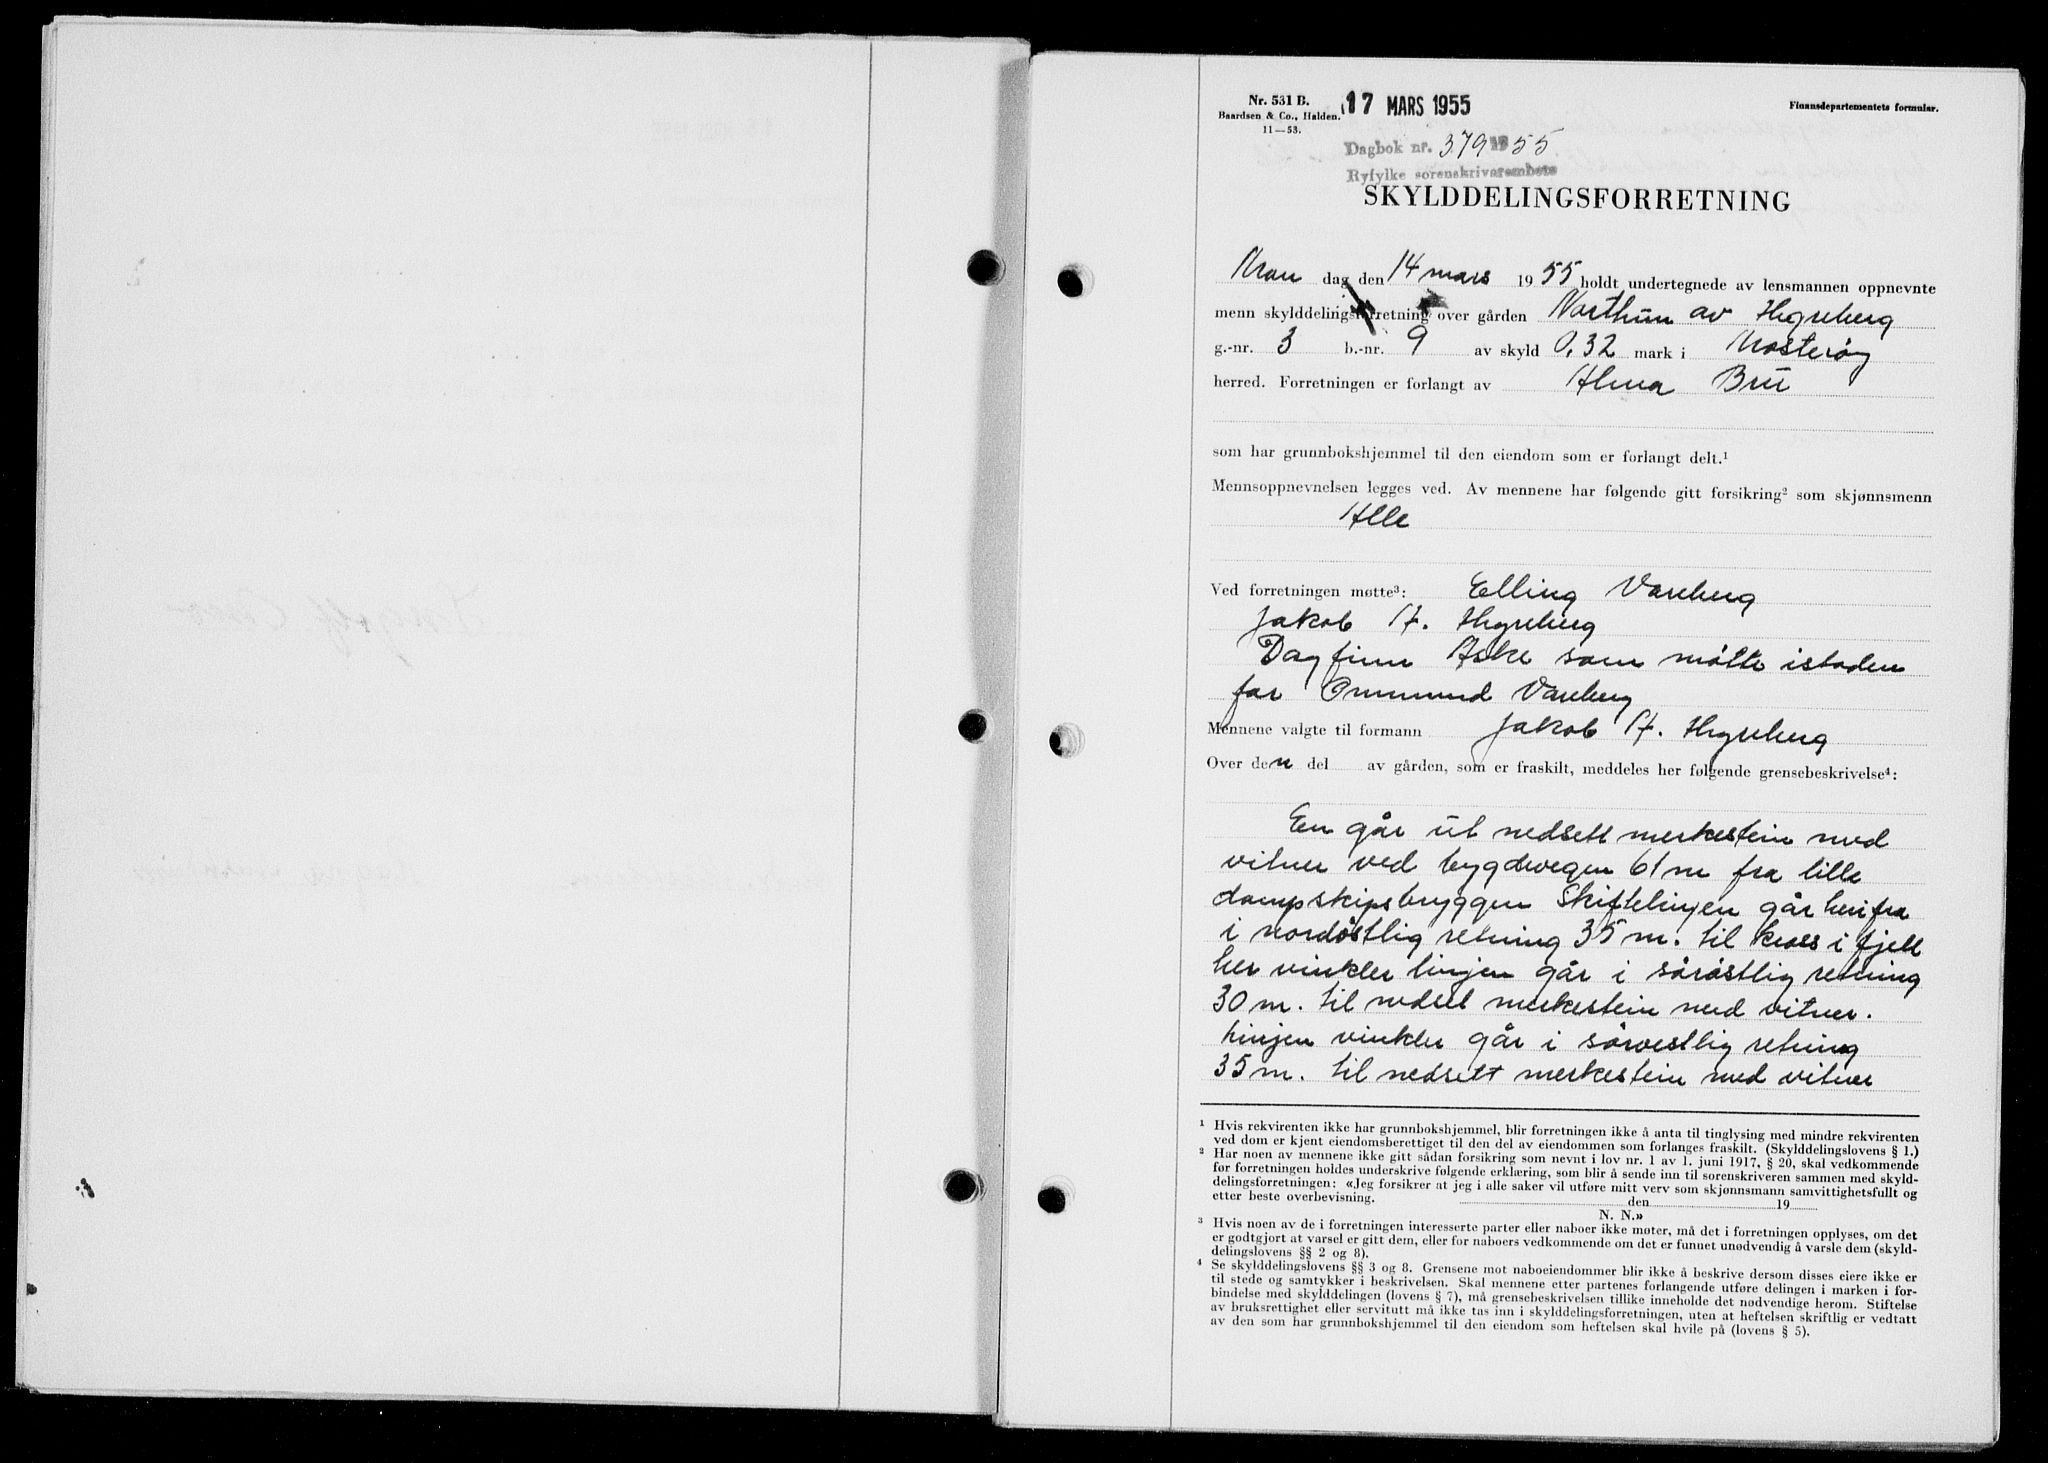 Nr. 531 B.
Baardsen & Co., Halden.
11—53.
17 MARS 1955
Finansdepartementets formular.
Dagbok nr. 379 1955
Ryfylke sorenskriverembete
SKYLDDELINGSFORRETNING
Mon dag den 14 mars 1955 holdt undertegnede av lensmannen oppnevnte
menn skylddelingsforretning over gården Northun av Hegreberg
g.-nr. 3 b.-nr. 9 av skyld 0,32 mark i Mosterøy
herred. Forretningen er forlangt av Alma Bru
som har grunnbokshjemmel til den eiendom som er forlangt delt.¹
Mennsoppnevnelsen legges ved. Av mennene har følgende gitt forsikring² som skjønnsmenn
Alle
Ved forretningen møtte³: Elling Vareberg
Jakob A. Hegreberg
Dagfinn Aske som møtte istaden
for Ommund Vareberg
Mennene valgte til formann Jakob A. Hegreberg
Over den del av gården, som er fraskilt, meddeles her følgende grensebeskrivelse⁴:
En går ut nedsett merkestein med
vitner ved bygdevegen 61 m fra lille
dampskipsbryggen Skiftelinjen går herifra
i nordöstlig retning 35 m. til kross i fjell
her vinkler linjen går i söröstlig retning
30 m. til nedset merkestein med vitner.
Linjen vinkler går i sörvestlig retning
35 m. til nedsett merkestein med vitner
¹ Hvis rekvirenten ikke har grunnbokshjemmel, blir forretningen ikke å anta til tinglysing med mindre rekvirenten
ved dom er kjent eiendomsberettiget til den del av eiendommen som forlanges fraskilt. (Skylddelingslovens § 1.)
² Har noen av mennene ikke gitt sådan forsikring som nevnt i lov nr. 1 av 1. juni 1917, § 20, skal vedkommende
før forretningen holdes underskrive følgende erklæring, som blir å sende inn til sorenskriveren sammen med skyld-
delingsforretningen: «Jeg forsikrer at jeg i alle saker vil utføre mitt verv som skjønnsmann samvittighetsfullt og
etter beste overbevisning. den 19
N. N.»
³ Hvis noen av de i forretningen interesserte parter eller naboer ikke møter, må det i forretningen opplyses, om det
er godtgjort at varsel er gitt dem, eller for naboers vedkommende om det er funnet unødvendig å varsle dem (skyld-
delingslovens §§ 2 og 8).
⁴ Se skylddelingslovens §§ 3 og 8. Grensene mot naboeiendommer blir ikke å beskrive dersom disses eiere ikke er
til stede og samtykker i beskrivelsen. Skal mennene etter partenes forlangende utføre delingen i marken i for-
bindelse med skylddelingen (lovens § 7), må grensebeskrivelsen tillike inneholde det nødvendige herom. Stiftelse
av bruksrettighet eller servitutt må ikke tas inn i skylddelingsforretningen, uten at heftelsen skriftlig er vedtatt
av den som har grunnbokshjemmel til den eiendom som heftelsen skal hvile på (lovens § 5).